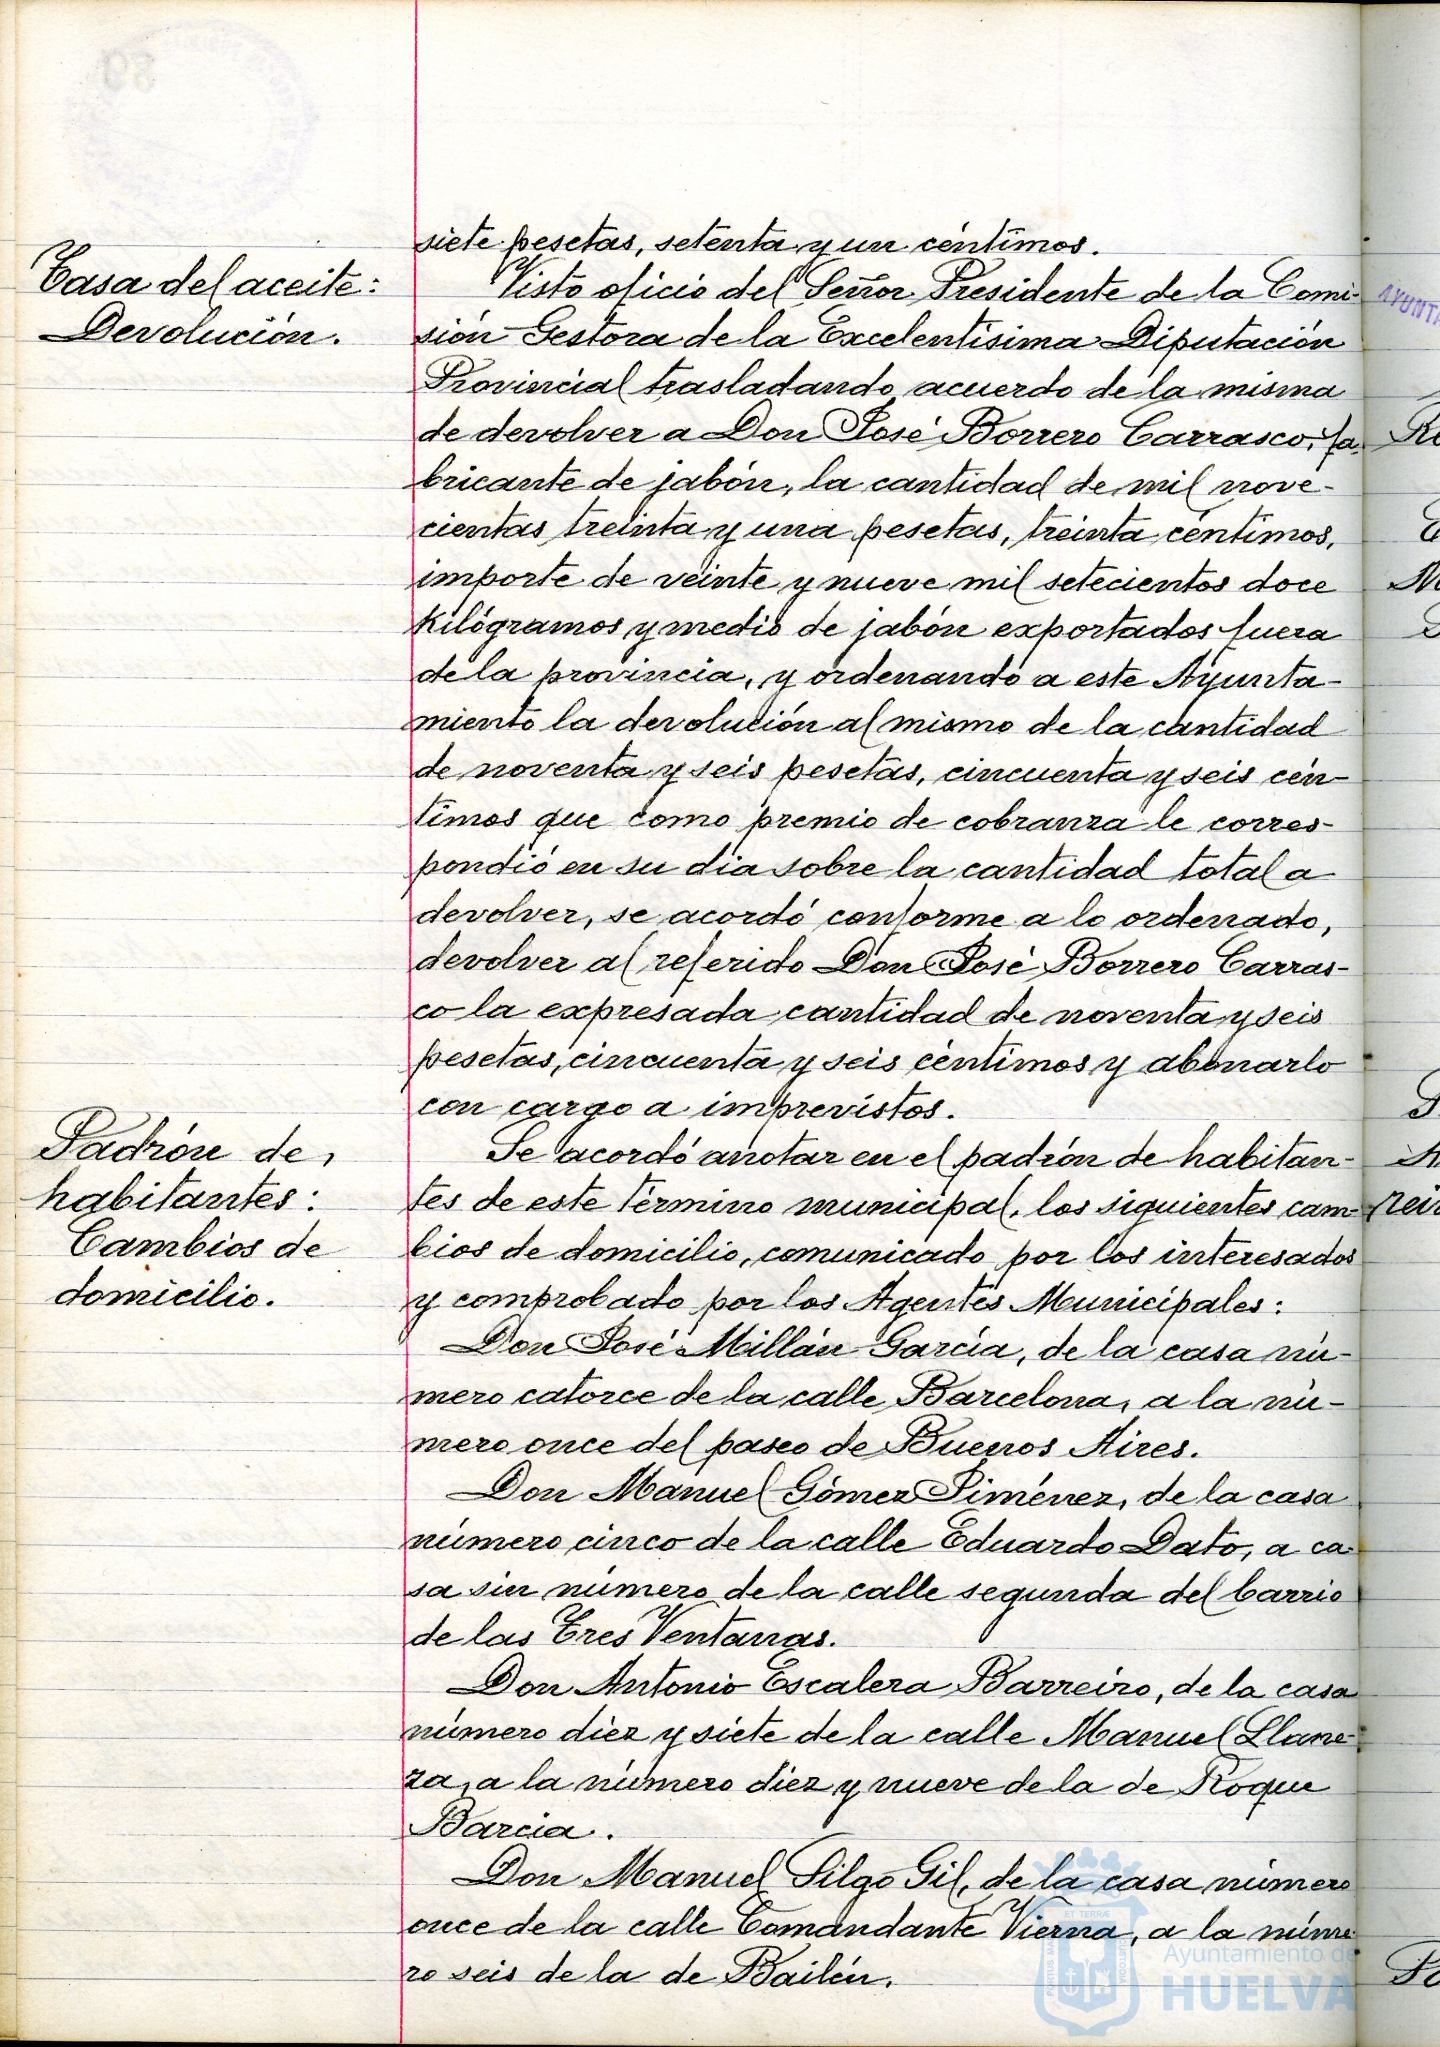 siete pesetas, setenta y un céntimos.
Casa del aceite:
Devolución.
Visto oficio del Señor Presidente de la Comi-
sión Gestora de la Excelentísima Diputación
Provincial trasladando acuerdo de la misma
de devolver a Don José Borrero Carrasco, fa-
bricante de jabón, la cantidad de mil nove-
cientas treinta y una pesetas, treinta céntimos,
importe de veinte y nueve mil setecientos doce
kilógramos y medio de jabón exportados fuera
de la provincia, y ordenando a este Ayunta-
miento la devolución al mismo de la cantidad
de noventa y seis pesetas, cincuenta y seis cén-
timos que como premio de cobranza le corres-
pondió en su dia sobre la cantidad total a
devolver, se acordó conforme a lo ordenado,
devolver al referido Don José Borrero Carras-
co la expresada cantidad de noventa y seis
pesetas, cincuenta y seis céntimos y abonarlo
con cargo a imprevistos.
Padrón de
habitantes:
Cambios de
domicilio.
Se acordó anotar en el padrón de habitan-
tes de este término municipal, los siguientes cam-
bios de domicilio, comunicado por los interesados
y comprobado por los Agentes Municipales:
Don José Millán García, de la casa nú-
mero catorce de la calle Barcelona, a la nú-
mero once del paseo de Buenos Aires.
Don Manuel Gómez Jiménez, de la casa
número cinco de la calle Eduardo Dato, a ca-
sa sin número de la calle segunda del barrio
de las Tres Ventanas.
Don Antonio Escalera Barreiro, de la casa
número diez y siete de la calle Manuel Llane-
za, a la número diez y nueve de la de Roque
Barcia.
Don Manuel Silgo Gil, de la casa número
once de la calle Comandante Vierna, a la núme-
ro seis de la de Bailén.
Ayuntamiento de
HUELVA